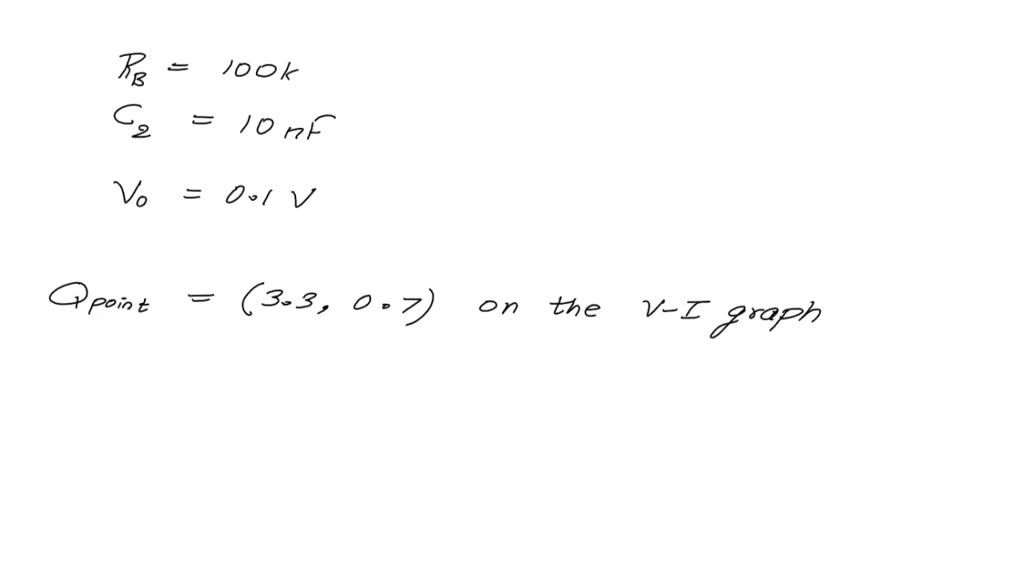 R_B = 100k
C_2 = 10 nF
V_0 = 0.1 V
Q_point = (3.3, 0.7) on the V-I graph